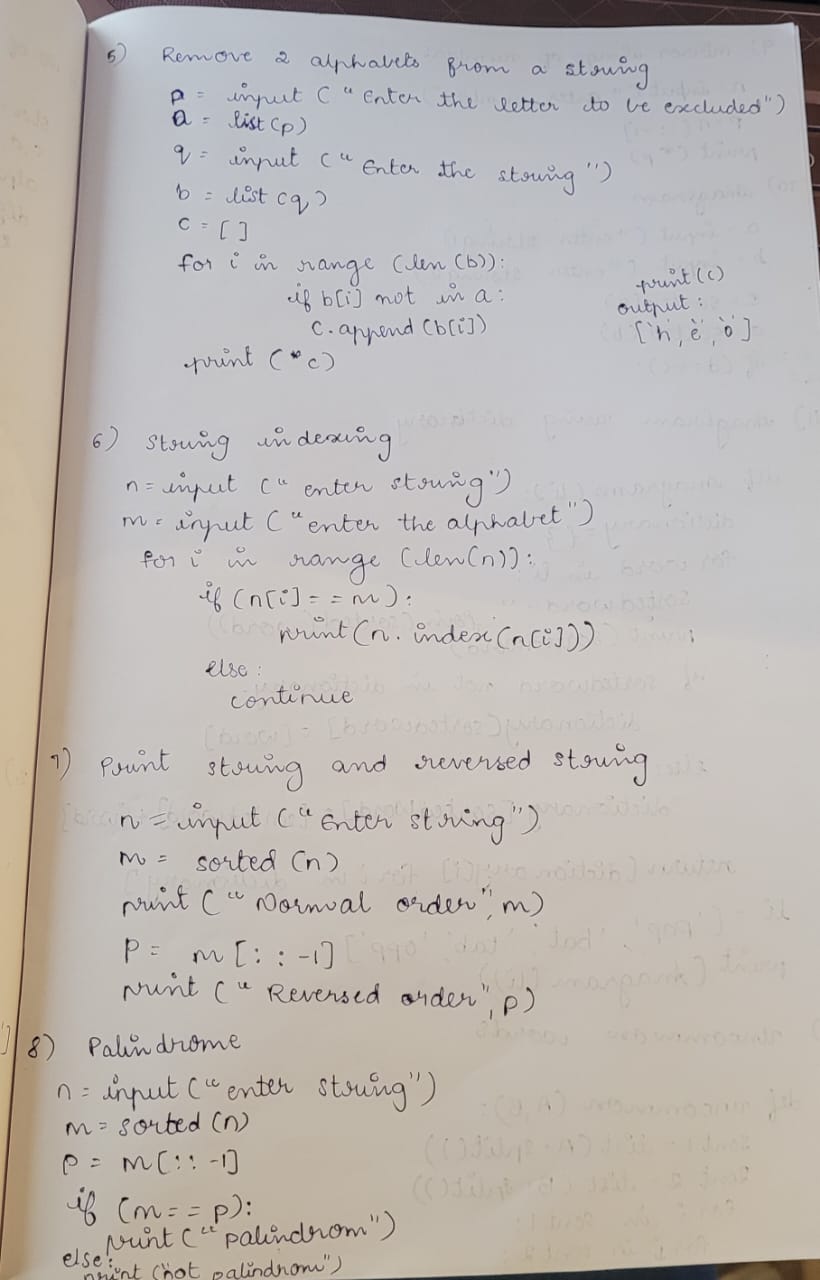 5) Remove 2 alphabets from a string
p = input ("Enter the letter to be excluded")
a = list(p)
q = input ("Enter the string")
b = list(q)
c = []
for i in range (len(b)):
if b[i] not in a:
c.append(b[i])
print(*c)
print(c)
output:
['h', 'e', 'o']
6) String indexing
n = input ("enter string")
m = input ("enter the alphabet")
for i in range (len(n)):
if (n[i]==m):
print(n.index(n[i]))
else:
continue
7) Print string and reversed string
n = input ("Enter string")
m = sorted (n)
print ("Normal order", m)
P = m[::-1]
print ("Reversed order", p)
8) Palindrome
n = input ("enter string")
m = sorted (n)
p = m[::-1]
if (m==p):
print ("palindrom")
else:
print ("not palindrom")